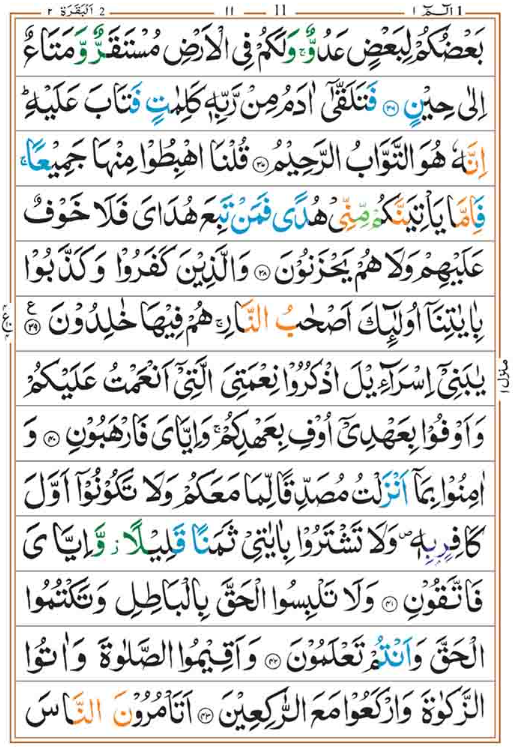 الٓمّٓ ١ 1 11 ١١ اَلْبَقَرَة ٢ 2
بَعْضُكُمْ لِبَعْضٍ عَدُوٌّ ۚ وَلَكُمْ فِی الْاَرْضِ مُسْتَقَرٌّ وَّمَتَاعٌ
اِلٰی حِیْنٍ ﴿۳۶﴾ فَتَلَقّٰۤی اٰدَمُ مِنْ رَّبِّهٖ کَلِمٰتٍ فَتَابَ عَلَیْهِ ؕ
اِنَّهٗ هُوَ التَّوَّابُ الرَّحِیْمُ ﴿۳۷﴾ قُلْنَا اهْبِطُوْا مِنْهَا جَمِیْعًا ۚ
فَاِمَّا یَاْتِیَنَّکُمْ مِّنِّیْ هُدًی فَمَنْ تَبِعَ هُدَایَ فَلَا خَوْفٌ
عَلَیْهِمْ وَلَا هُمْ یَحْزَنُوْنَ ﴿۳۸﴾ وَالَّذِیْنَ کَفَرُوْا وَکَذَّبُوْا
بِاٰیٰتِنَاۤ اُولٰٓئِكَ اَصْحٰبُ النَّارِ ۚ هُمْ فِیْهَا خٰلِدُوْنَ ﴿۳۹﴾ ع
یٰبَنِیْۤ اِسْرَآءِیْلَ اذْکُرُوْا نِعْمَتِیَ الَّتِیْۤ اَنْعَمْتُ عَلَیْکُمْ
منزل ١
وَاَوْفُوْا بِعَهْدِیْۤ اُوْفِ بِعَهْدِکُمْ ۚ وَاِیَّایَ فَارْهَبُوْنِ ﴿۴۰﴾ وَ
اٰمِنُوْا بِمَاۤ اَنْزَلْتُ مُصَدِّقًا لِّمَا مَعَکُمْ وَلَا تَکُوْنُوْۤا اَوَّلَ
کَافِرٍۭ بِهٖ ۪ وَلَا تَشْتَرُوْا بِاٰیٰتِیْ ثَمَنًا قَلِیْلًا ؗ وَّاِیَّایَ
فَاتَّقُوْنِ ﴿۴۱﴾ وَلَا تَلْبِسُوا الْحَقَّ بِالْبَاطِلِ وَتَکْتُمُوا
الْحَقَّ وَاَنْتُمْ تَعْلَمُوْنَ ﴿۴۲﴾ وَاَقِیْمُوا الصَّلٰوةَ وَاٰتُوا
الزَّکٰوةَ وَارْکَعُوْا مَعَ الرّٰکِعِیْنَ ﴿۴۳﴾ اَتَاْمُرُوْنَ النَّاسَ